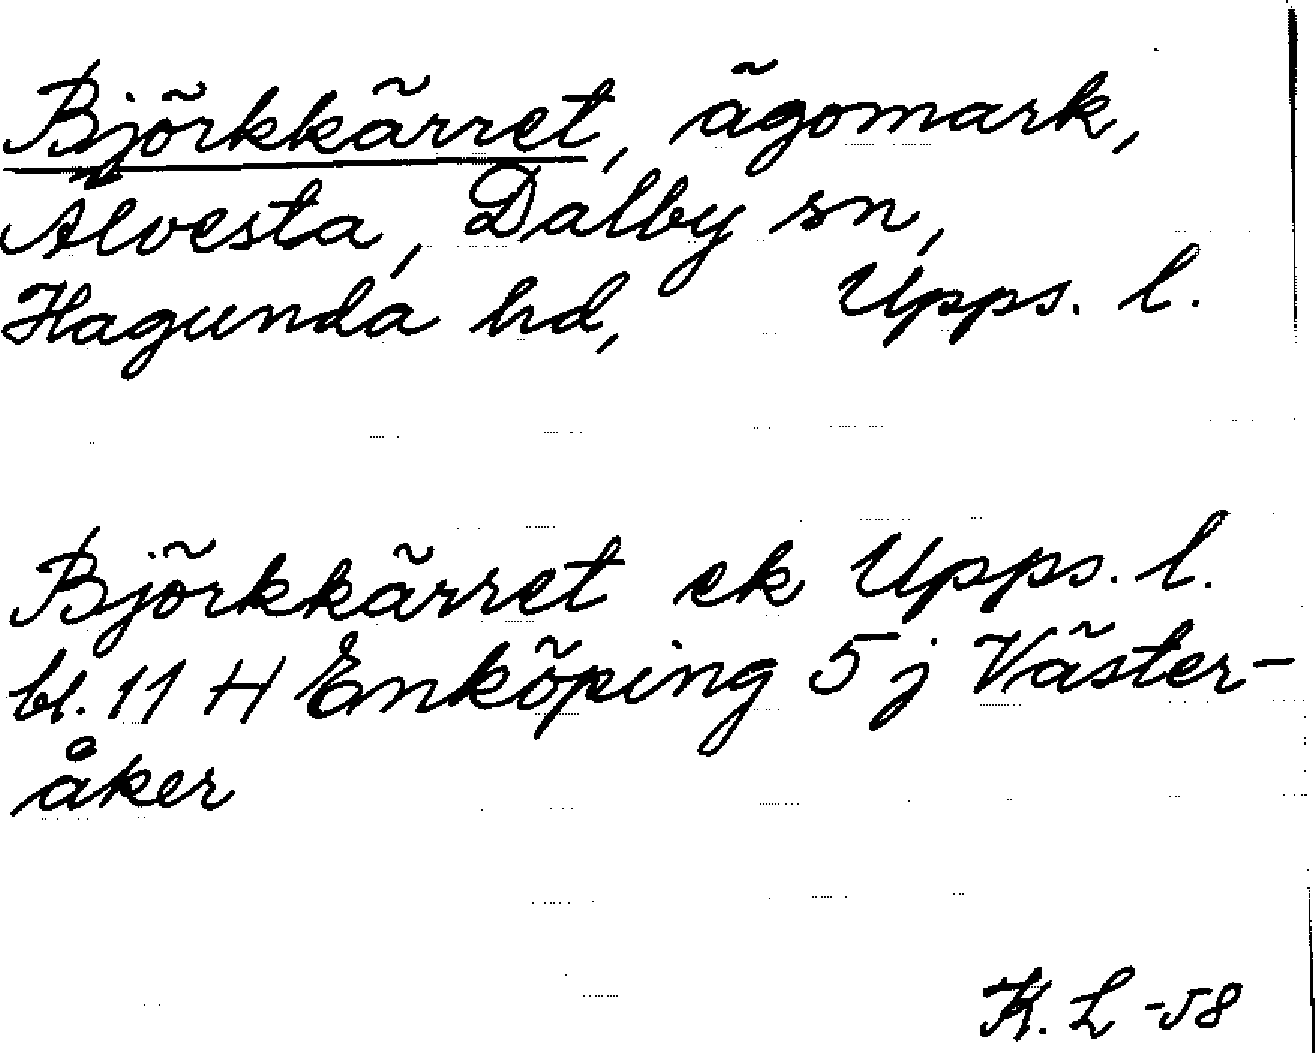 Björkkärret, ägomark,
Ålvesta, Dalby sn,
Hagunda hd, Upps. l.
Björkkärret ek Upps. l.
bl. 11 H Enköping 5 j Väster-
åker
K. L -58